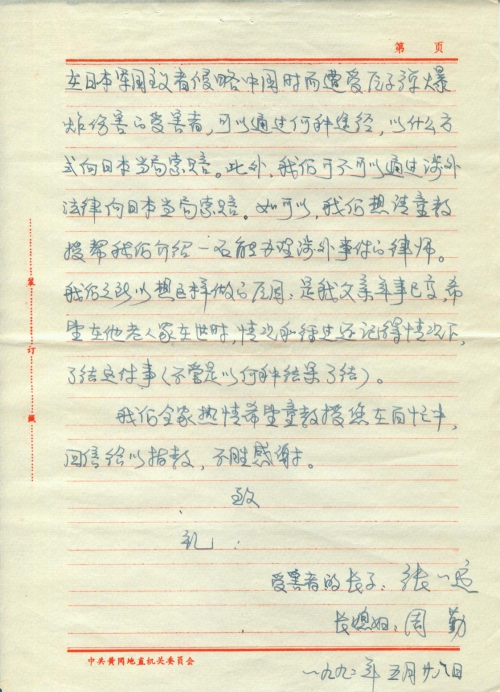 第 页
在日本军国主义者侵略中国时而遭受原子弹爆
炸伤害的受害者，可以通过何种途经，以什么方
式向日本当局索赔。此外，我们可不可以通过涉外
法律向日本当局索赔。如可以，我们想请童教
授帮我们介绍一名能办理涉外事件的律师。
我们之所以想这样做的原因：是我父亲年事已高，希
望在他老人家在世时，情况和经过还记得情况下，
了结这件事（不管是以何种结果了结）。
我们全家热情希望童教授您在百忙中，
回信给以指教，不胜感谢。
致
礼！
受害者的长子：张一
长媳妇：周勤
一九九二年五月廿六日
装
订
线
中共黄冈地直机关委员会